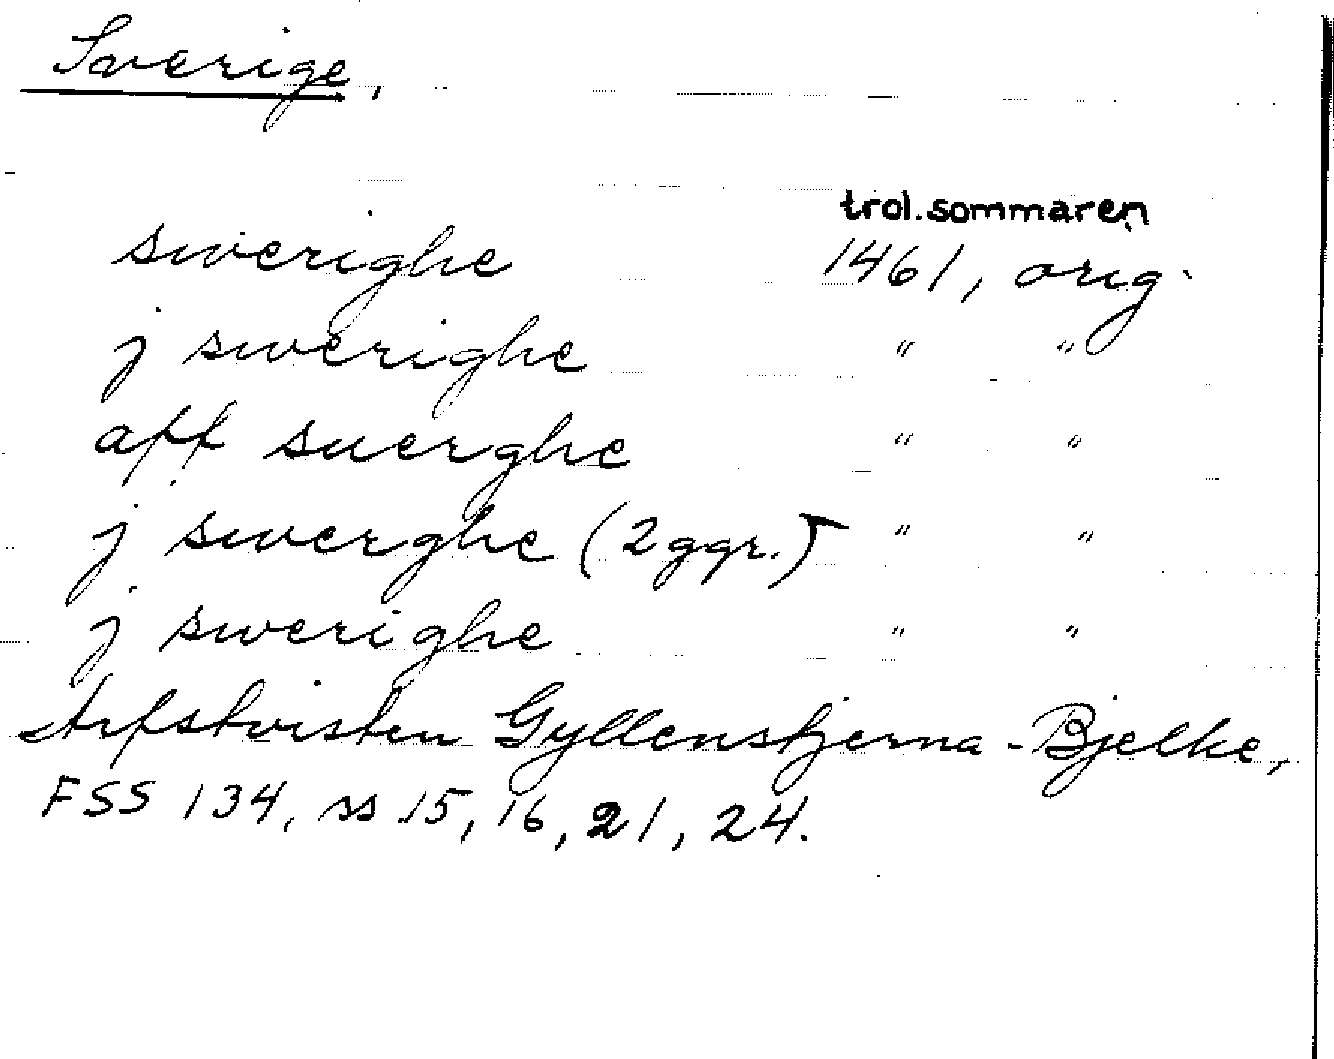 Sverige,
trol. sommaren
swerighe 1461, orig.
j swerighe " "
aff suerghe " "
j swerghe (2 ggr.) " "
j swerighe " "
Arfstvisten Gyllenstjerna-Bjelke,
FSS 134, ss 15, 16, 21, 24.